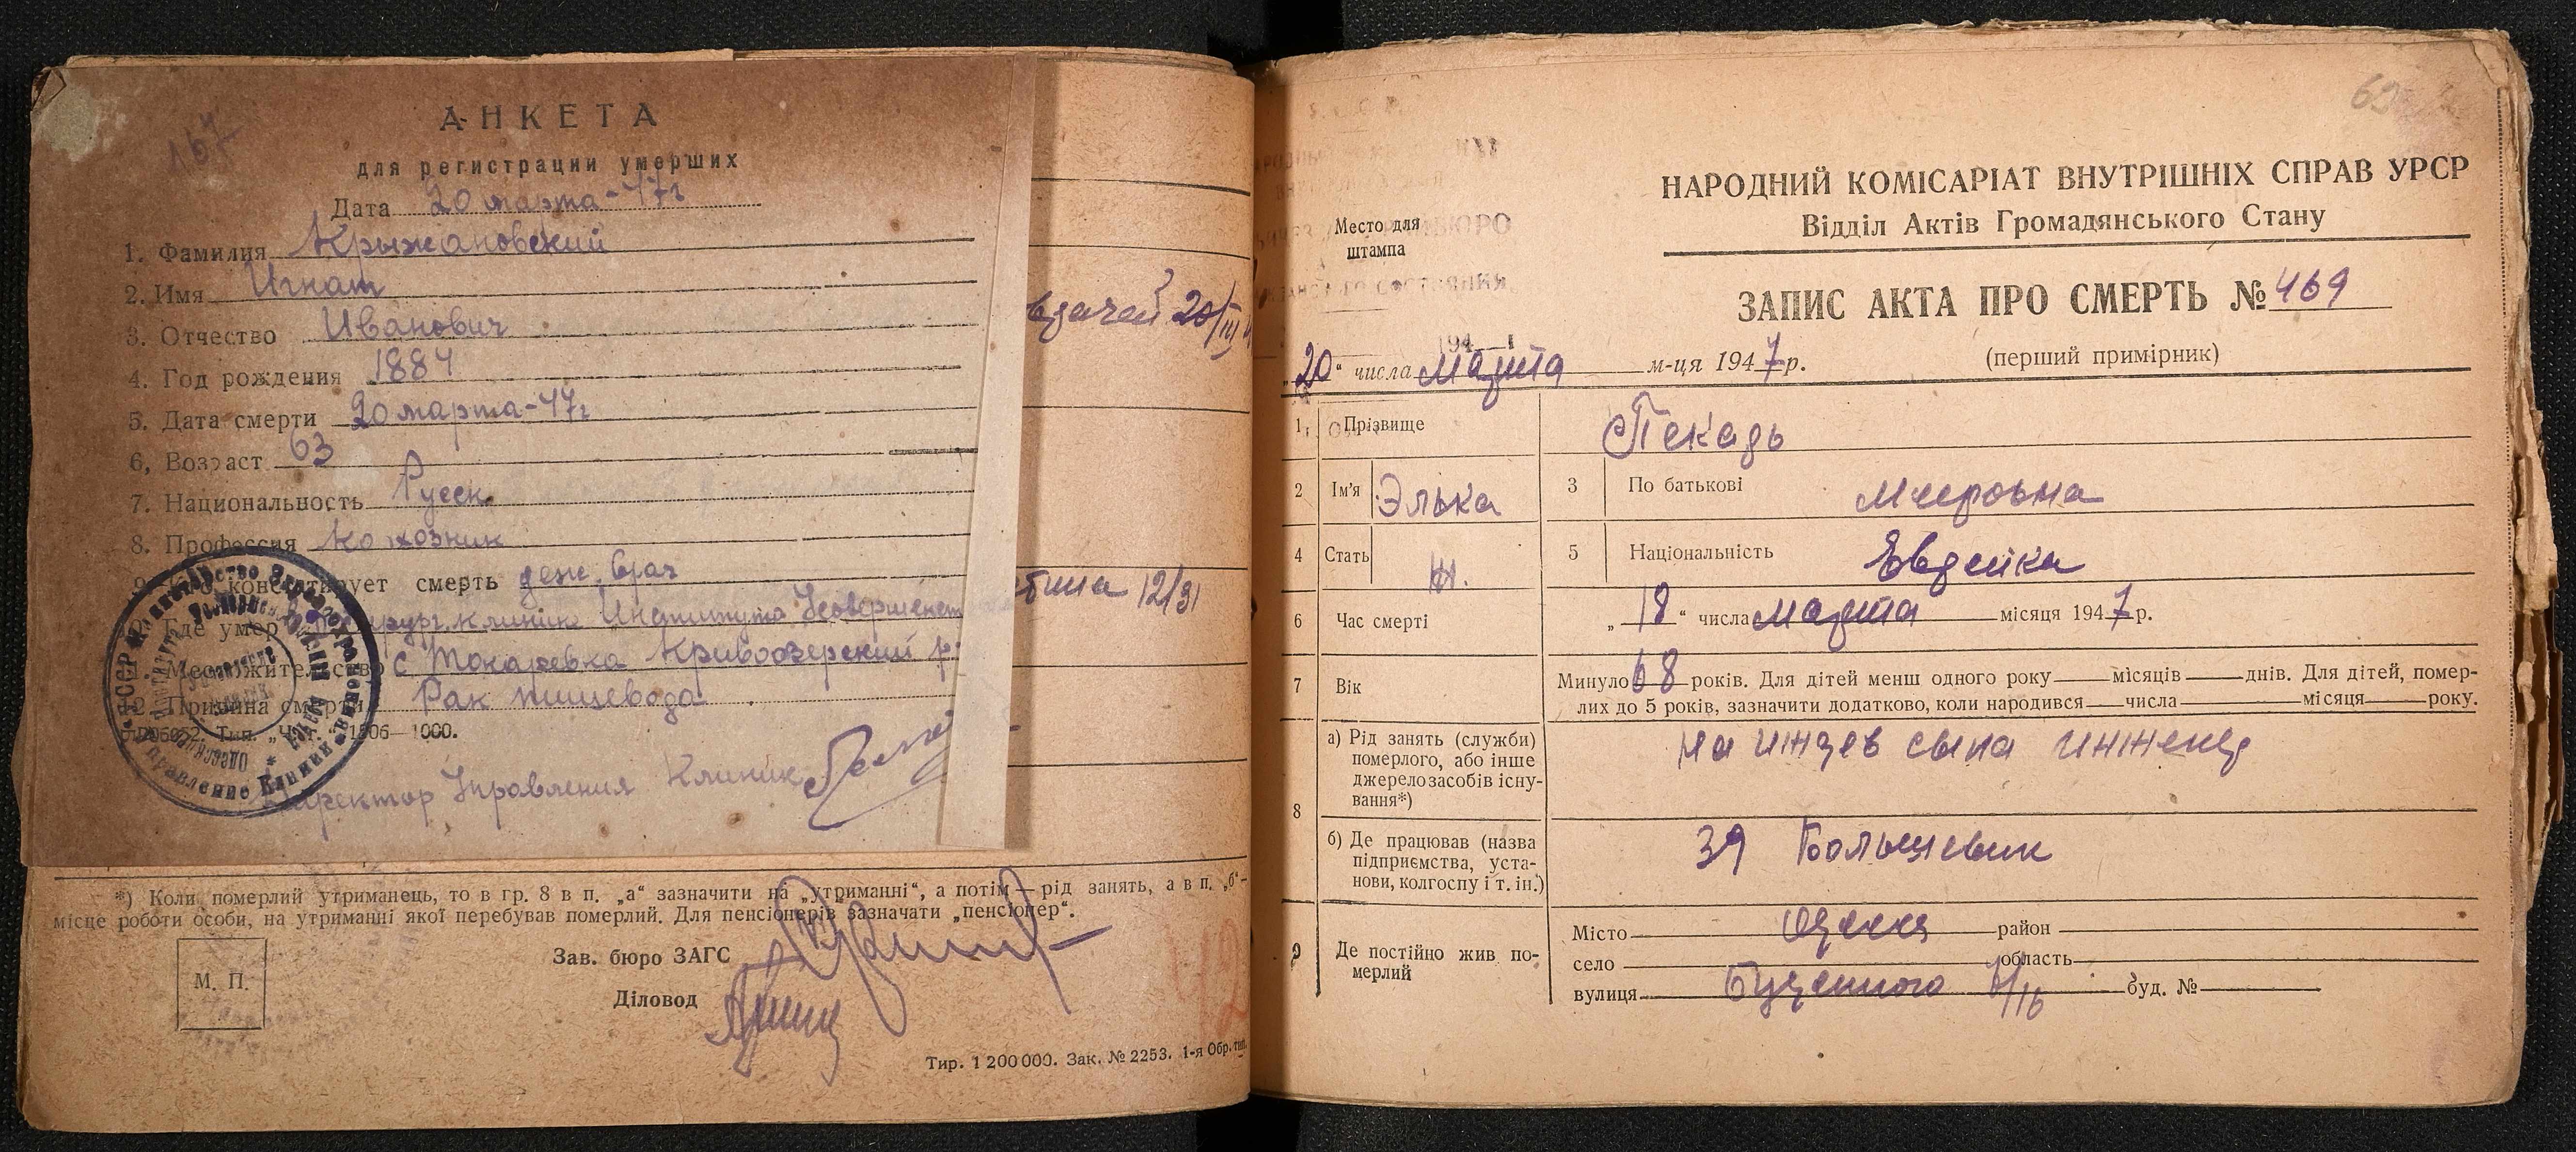 АНКЕТА
для регистрации умерших
Дата 20 марта-47г
1. Фамилия Крыжановский
2. Имя Игнат
3. Отчество Иванович
4. Год рождения 1884
5. Дата смерти 20 марта-47г
6, Возраст 63
7. Национальность Русск
8. Профессия колхозник
констатирует смерть деж. врач
Где умер хирург. клиника Института Усовершенст
Местожительство с Токаревка Кривоозерский р
12. Причина смерти Рак пищевода
1000.
Директор Управления Клиник
20/III
12/31
*) Коли померлий утриманець, то в гр. 8 в п. „а“ зазначити на „утриманні“, а потім — рід занять, а в п. „б“—
місце роботи особи, на утриманні якої перебував померлий. Для пенсіонерів зазначати „пенсіонер“.
М. П.
Зав. бюро ЗАГС
Діловод
Тир. 1 200 000. Зак. № 2253. 1-я Обр. тип.
НАРОДНИЙ КОМІСАРІАТ ВНУТРІШНІХ СПРАВ УРСР
Відділ Актів Громадянського Стану
Место для
штампа
ЗАПИС АКТА ПРО СМЕРТЬ № 469
„20“ числа Марта м-ця 1947 р.
(перший примірник)
1 Прізвище Пекадь
2 Ім'я Элька 3 По батькові Мееровна
4 Стать Ж. 5 Національність Еврейка
6 Час смерті „18“ числа Марта місяця 1947 р.
7 Вік Минуло 68 років. Для дітей менш одного року місяців днів. Для дітей, помер-
лих до 5 років, зазначити додатково, коли народився числа місяця року.
8 а) Рід занять (служби)
померлого, або інше
джерело засобів існу-
вання*)
на иждев сына инженер
б) Де працював (назва
підприємства, уста-
нови, колгоспу і т. ін.)
39 Большевик
9 Де постійно жив по-
мерлий
Місто Одесса район
село область
вулиця Буденного буд. №